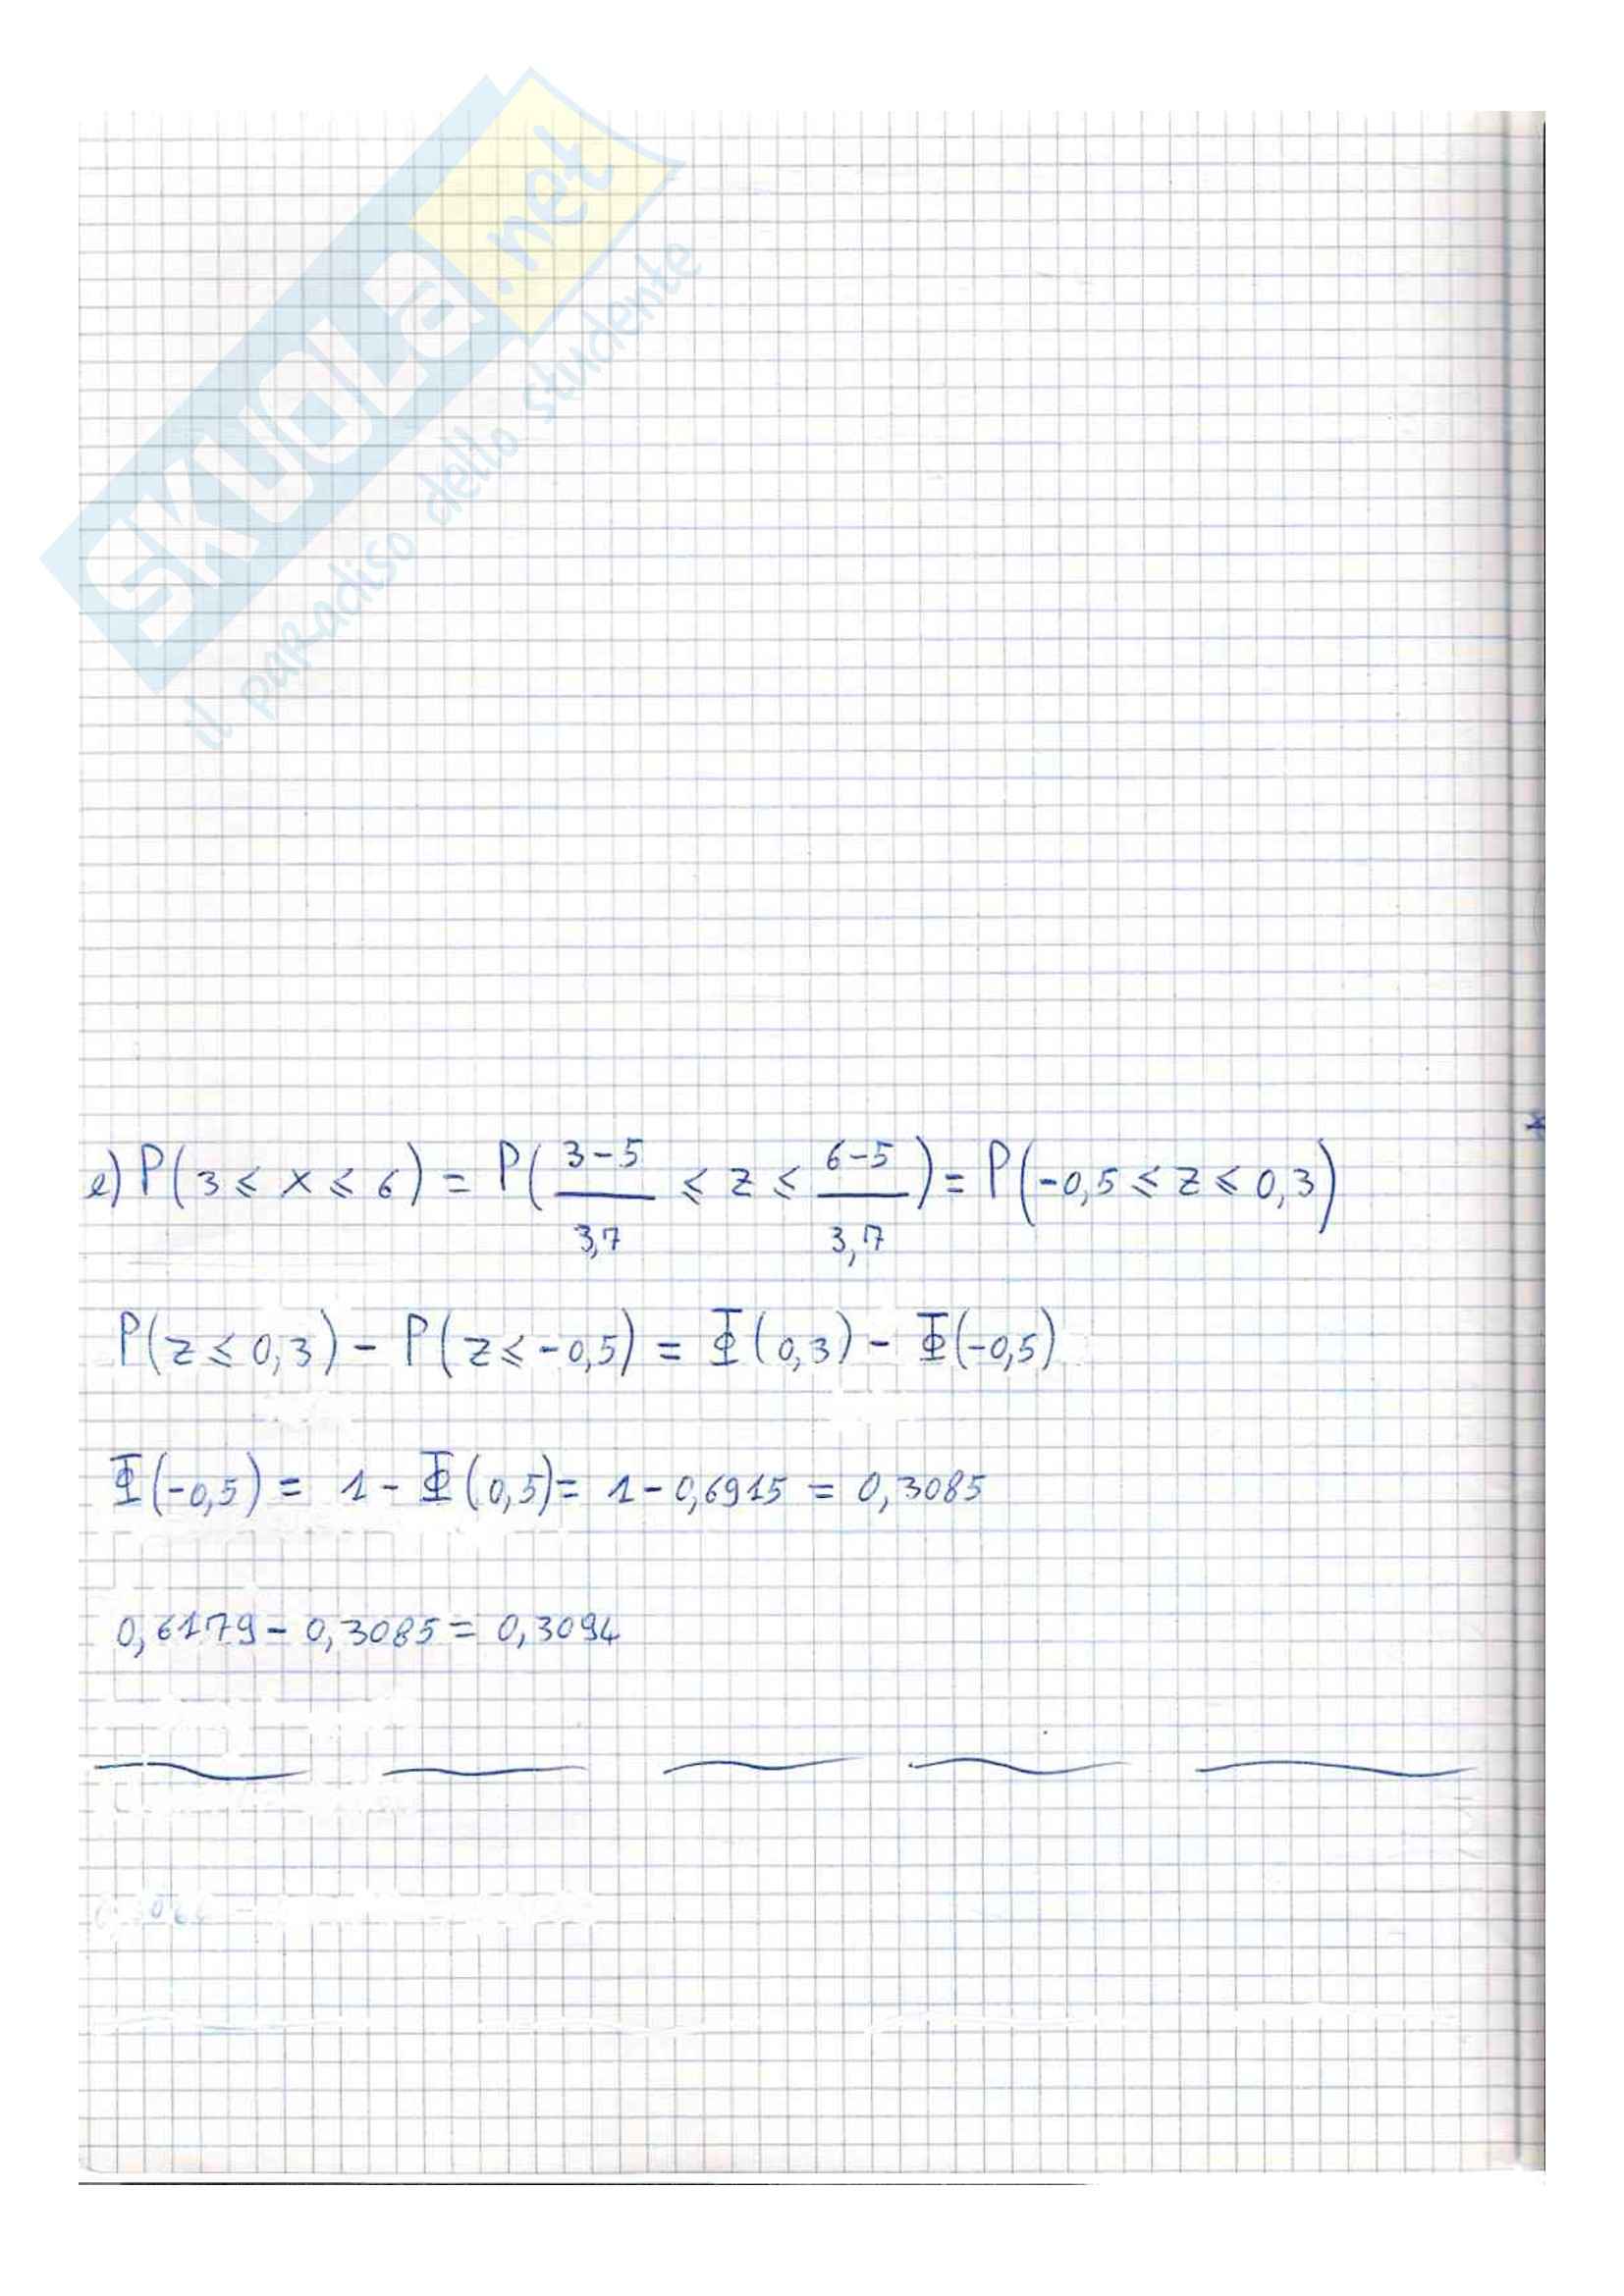 SKUOLA.net
il paradiso dello studente
e) P(3 ⩽ x ⩽ 6) = P( (3-5)/3,7 ⩽ z ⩽ (6-5)/3,7 ) = P(-0,5 ⩽ z ⩽ 0,3)
P(z ⩽ 0,3) - P(z ⩽ -0,5) = Φ(0,3) - Φ(-0,5)
Φ(-0,5) = 1 - Φ(0,5) = 1 - 0,6915 = 0,3085
0,6179 - 0,3085 = 0,3094